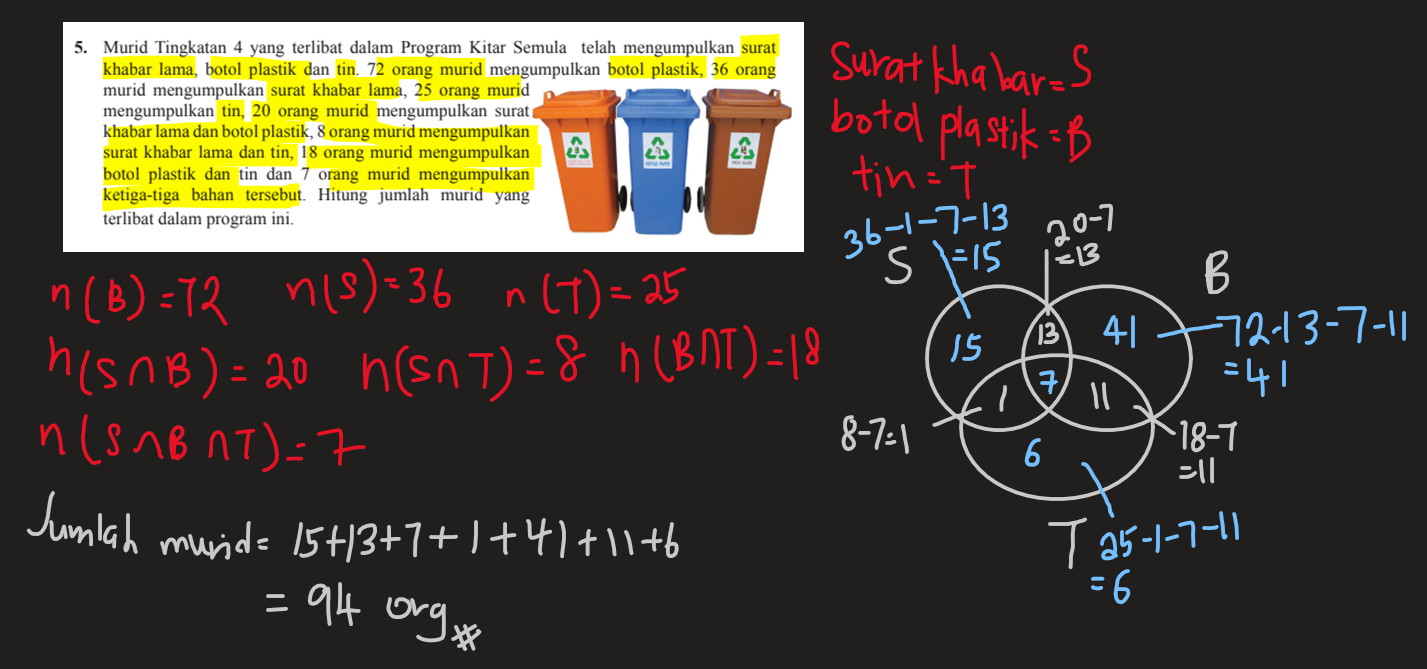 5. Murid Tingkatan 4 yang terlibat dalam Program Kitar Semula telah mengumpulkan surat
khabar lama, botol plastik dan tin. 72 orang murid mengumpulkan botol plastik, 36 orang
murid mengumpulkan surat khabar lama, 25 orang murid
mengumpulkan tin, 20 orang murid mengumpulkan surat
khabar lama dan botol plastik, 8 orang murid mengumpulkan
surat khabar lama dan tin, 18 orang murid mengumpulkan
botol plastik dan tin dan 7 orang murid mengumpulkan
ketiga-tiga bahan tersebut. Hitung jumlah murid yang
terlibat dalam program ini.
Surat khabar = S
botol plastik = B
tin = T
n(B) = 72 n(S) = 36 n(T) = 25
n(S∩B) = 20 n(S∩T) = 8 n(B∩T) = 18
n(S∩B∩T) = 7
Jumlah murid = 15+13+7+1+41+11+6
= 94 org #
36-1-7-13
=15
20-7
=13
S
B
15
13
41
72-13-7-11
=41
7
1
11
8-7=1
18-7
=11
6
T
25-1-7-11
=6